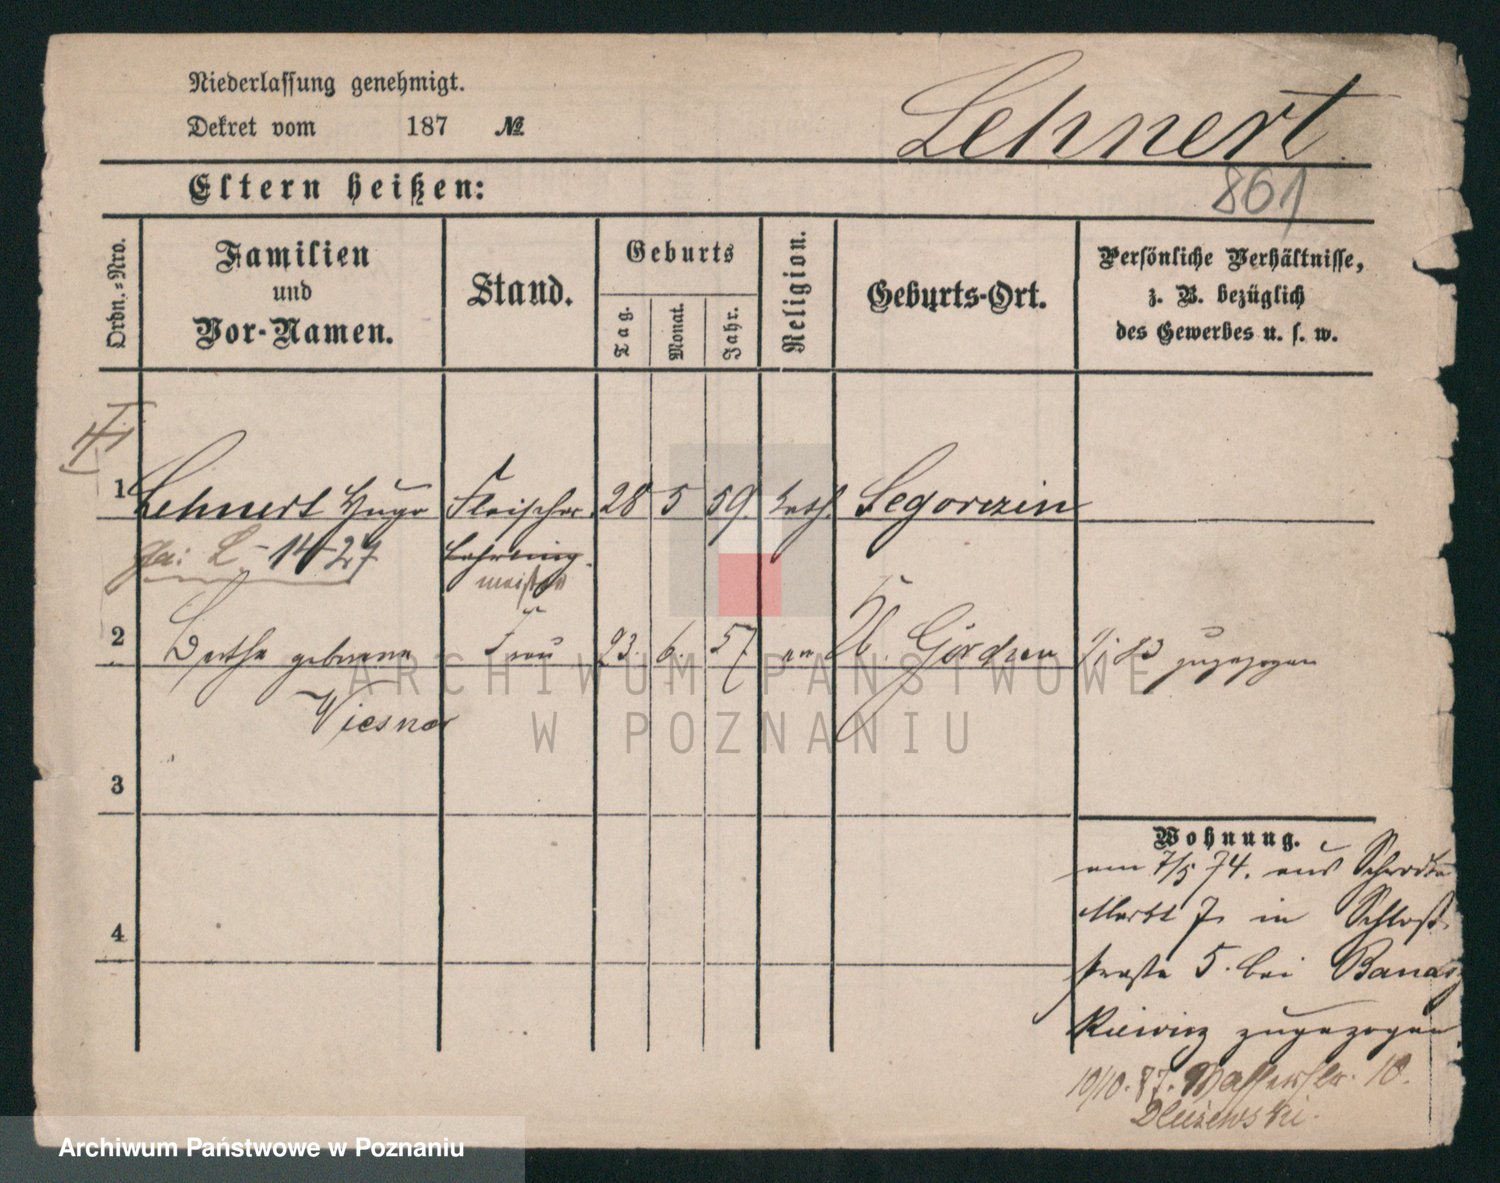 Niederlassung genehmigt.
Dekret vom 187 №
Lehnert
861
Eltern heißen:
Ordn.-Nro.
Familien
und
Vor-Namen.
Stand.
Geburts
Tag.
Monat.
Jahr.
Religion.
Geburts-Ort.
Persönliche Verhältnisse,
z. B. bezüglich
des Gewerbes u. s. w.
1 Lehnert Hugo Fleischer 28 5 59. kath. Segorczin
L-14-27 Lehrling.
meister
2 Bertha geborene Frau 23. 6. 57 ev Görchen zugezogen
Wiesner
3
4
Wohnung.
am 7/5 74. aus Schrodka
Markt 7. in Schloß-
straße 5. bei Banas
kiewicz zugezogen
10/10. 87. Wasserstr. 10.
Dluzewski.
ARCHIWUM PAŃSTWOWE
W POZNANIU
Archiwum Państwowe w Poznaniu